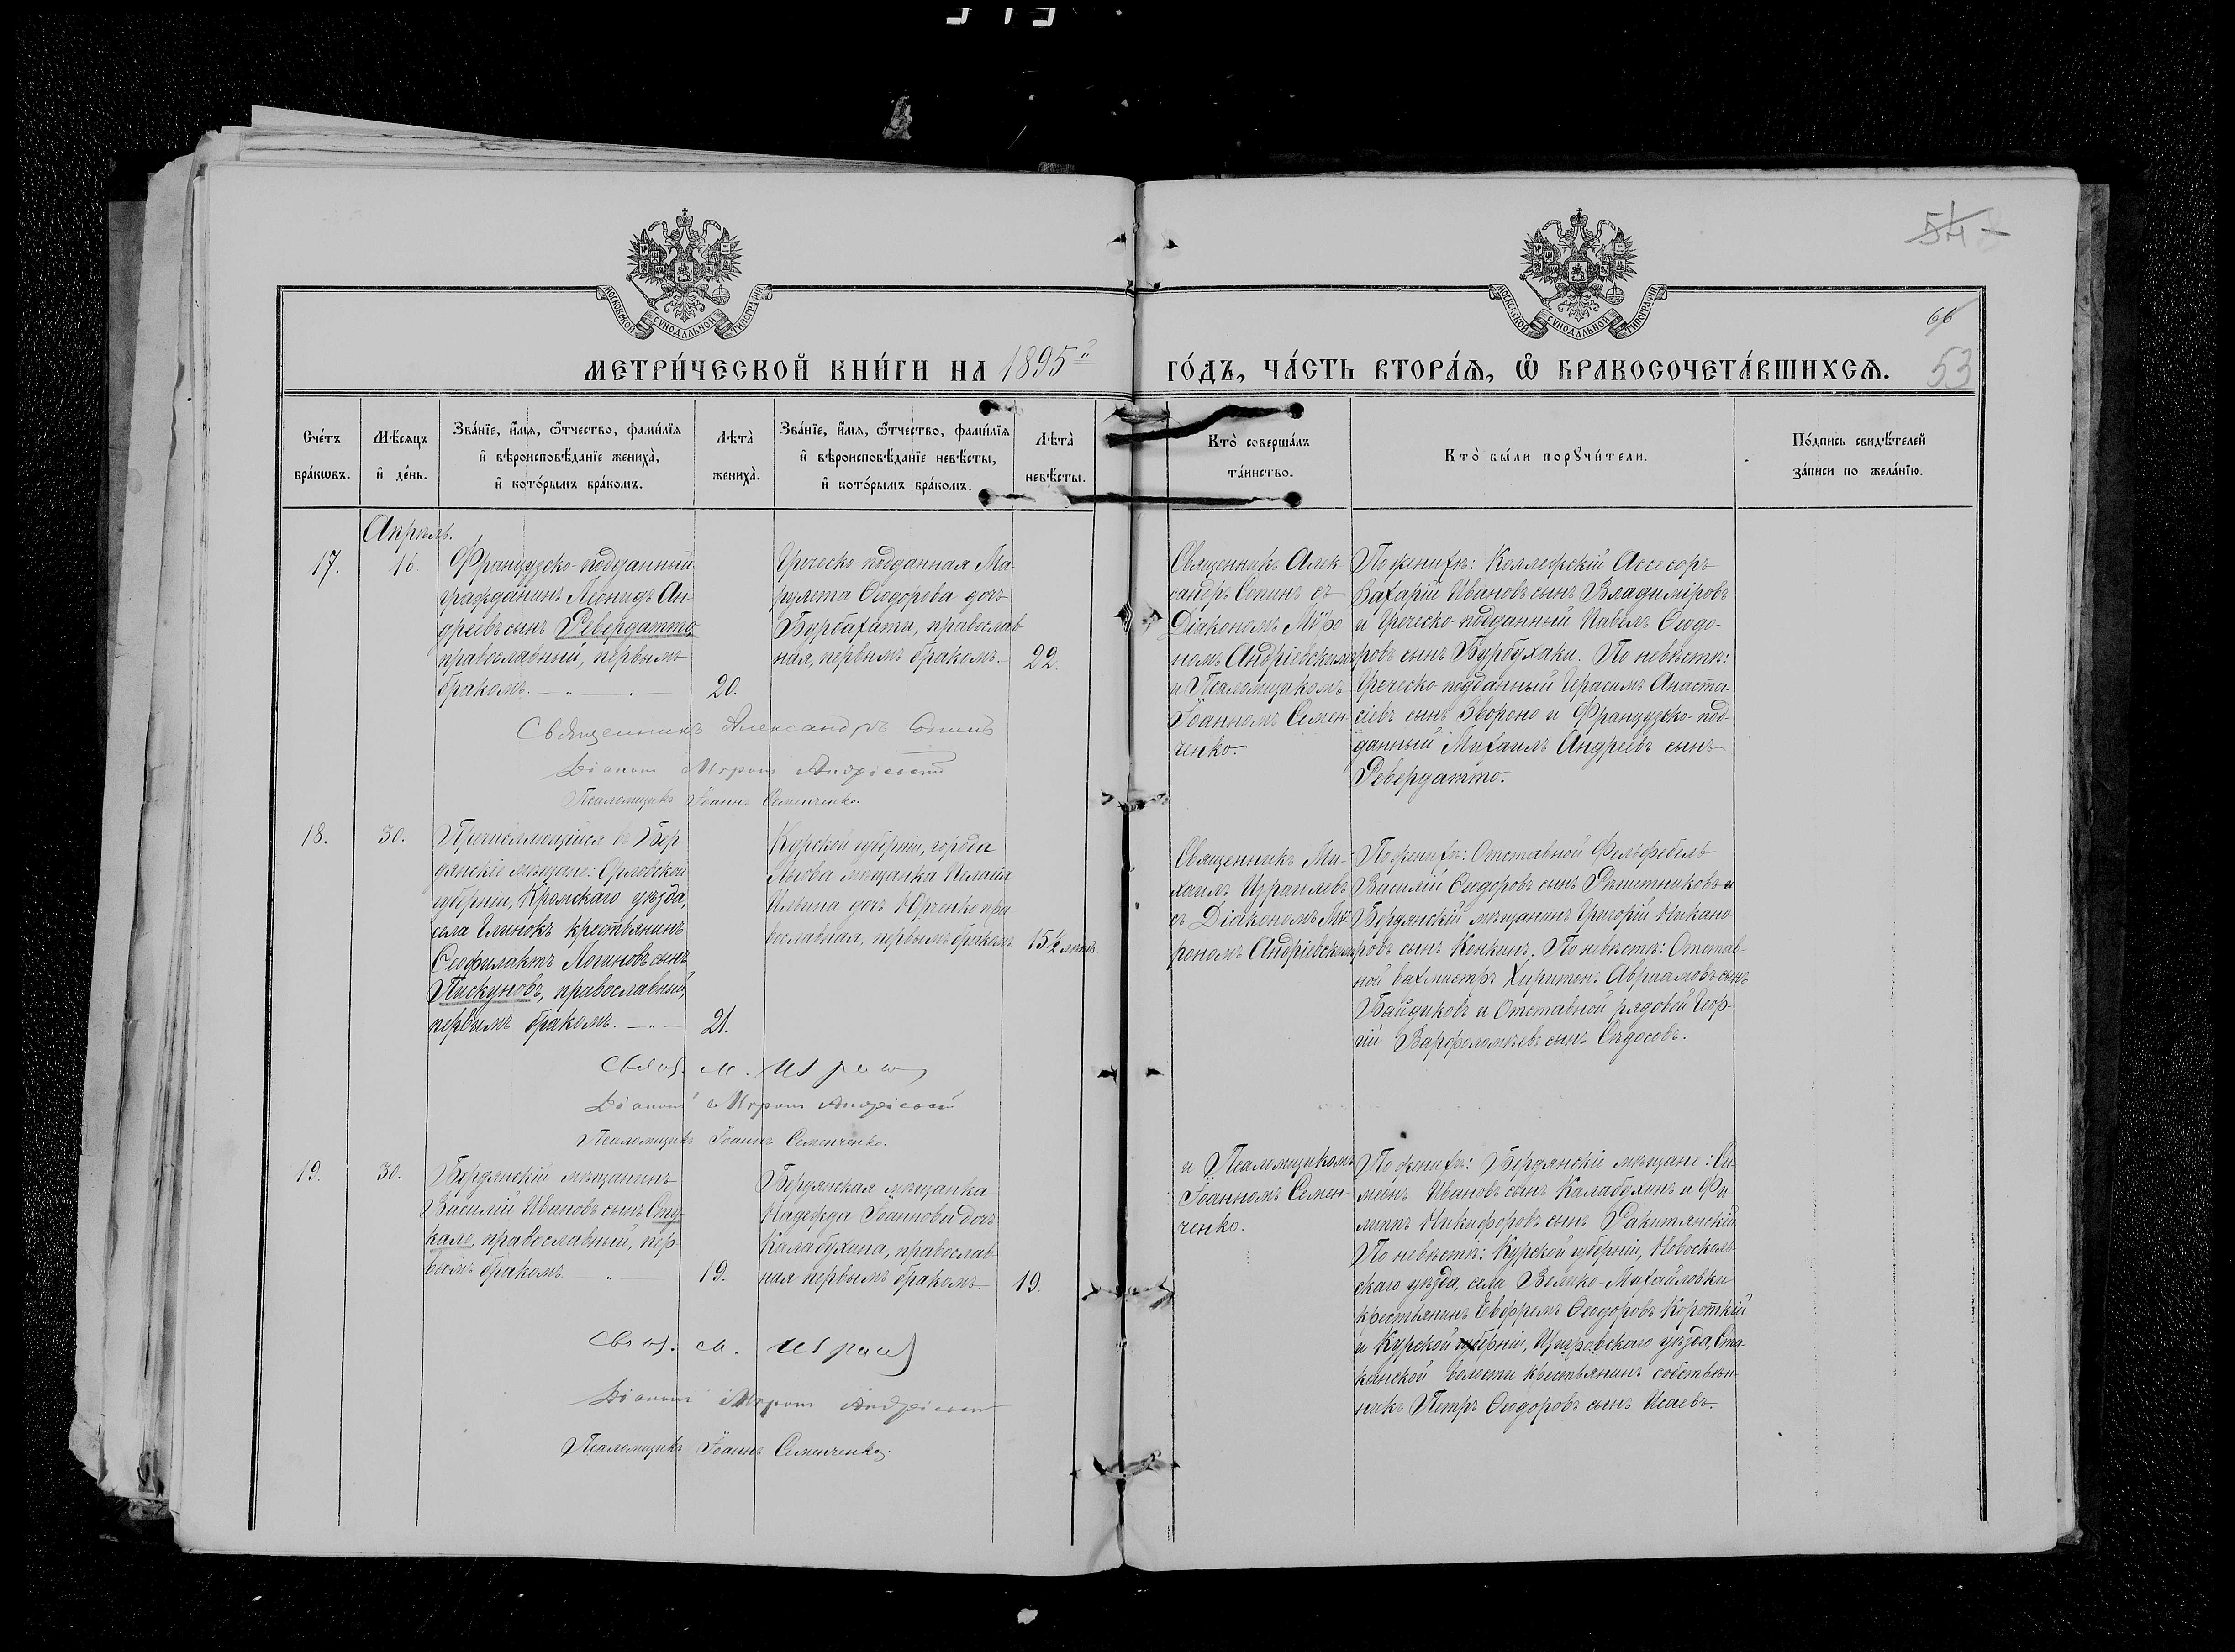 54
66
53
МОСКОВСКОЙ СУНОДАЛЬНОЙ ТИПОГРАФІИ
МОСКОВСКОЙ СУНОДАЛЬНОЙ ТИПОГРАФІИ
МЕТРИ́ЧЕСКОЙ КНИ́ГИ НА 1895й ГО́ДЪ, ЧА́СТЬ ВТОРА́Ѧ, Ѽ БРАКОСОЧЕТА́ВШИХСѦ.
Сче́тъ бра́кѡвъ.
Мѣ́сяцъ и де́нь.
Зва́нїе, и́мя, ѻ́тчество, фами́лїя
и вѣроисповѣ́данїе жениха̀,
и кото́рымъ бра́комъ.
Лѣта̀ жениха̀.
Зва́нїе, и́мя, ѻ́тчество, фами́лїя
и вѣроисповѣ́данїе невѣ́сты,
и кото́рымъ бра́комъ.
Лѣта̀ невѣ́сты.
Кто̀ соверша́лъ
та́инство.
Кто̀ бы́ли порꙋчи́тели.
По́дпись свидѣ́телей
за́писи по жела́нїю.
Апрѣль.
17.
16.
Французско-подданный
гражданинъ Леонидъ Ан-
дреевъ сынъ Ревердатто,
православный, первымъ
бракомъ.
20.
Греческо-подданная Ма-
рулета Ѳеодорова дочь
Бурбахати, православ
ная, первымъ бракомъ.
22.
Священникъ Алек
сандръ Сопинъ съ
Діакономъ Мѵро-
номъ Андріевскимъ
и Псаломщикомъ
Іоанномъ Семен-
ченко.
По женихѣ: Коллежскій Ассесоръ
Захарій Ивановъ сынъ Владиміровъ
и Греческо-подданный Павелъ Ѳеодо-
ровъ сынъ Бурбухаки. По невѣстѣ:
Греческо подданный Герасимъ Анаста-
сіевъ сынъ Звороно и Французско-под-
данный Михаилъ Андреевъ сынъ
Ревердатто.
Священникъ Александръ Сопинъ
Діаконъ Мѵронъ Андріевскій
Псаломщикъ Іоаннъ Семенченко.
18.
30.
Причисляющійся въ Бер
дянскіе мѣщане: Орловской
губерніи, Кромскаго уѣзда,
села Глинокъ крестьянинъ
Ѳеофилактъ Логиновъ сынъ
Пискуновъ, православный,
первымъ бракомъ.
21.
Курской губерніи, города
Льгова мѣщанка Пелагія
Ильина дочь Юрченко пра
вославная, первымъ бракомъ
15½ лѣтъ.
Священникъ Ми-
хаилъ Израилевъ
съ Діакономъ Мѵ-
рономъ Андріевскимъ
По женихѣ: Отставной Фельдфебель
Василій Ѳеодоровъ сынъ Рѣшетниковъ и
Бердянскій мѣщанинъ Григорій Никано-
ровъ сынъ Конкинъ. По невѣстѣ: Отстав
ной вахмистръ Харитонъ Авраамовъ сынъ
Байдиковъ и Отставной рядовой Геор-
гій Варѳоломѣевъ сынъ Сѣдосовъ.
Свящ. М. Израи
Діаконъ Мѵронъ Андріевскій
Псаломщикъ Іоаннъ Семенченко.
19.
30.
Бердянскій мѣщанинъ
Василій Ивановъ сынъ Сту-
кало, православный, пер-
вымъ бракомъ
19.
Бердянская мѣщанка
Надежда Іоаннова дочь
Калабухина, православ-
ная первымъ бракомъ
19.
и Псаломщикомъ
Іоанномъ Семен-
ченко.
По женихѣ: Бердянскіе мѣщане: Си-
меонъ Ивановъ сынъ Калабухинъ и Фи-
липпъ Никифоровъ сынъ Ракитянскій
По невѣстѣ: Курской губерніи, Новосколь-
скаго уѣзда, села Велико-Михайловки
крестьянинъ Евфремъ Ѳеодоровъ Короткій
и Курской губерніи, Щигровскаго уѣзда, Ста-
канской волости крестьянинъ собствен-
никъ Петръ Ѳеодоровъ сынъ Исаевъ.
Свящ. М. Израи
Діаконъ Мѵронъ Андріевскій
Псаломщикъ Іоаннъ Семенченко.